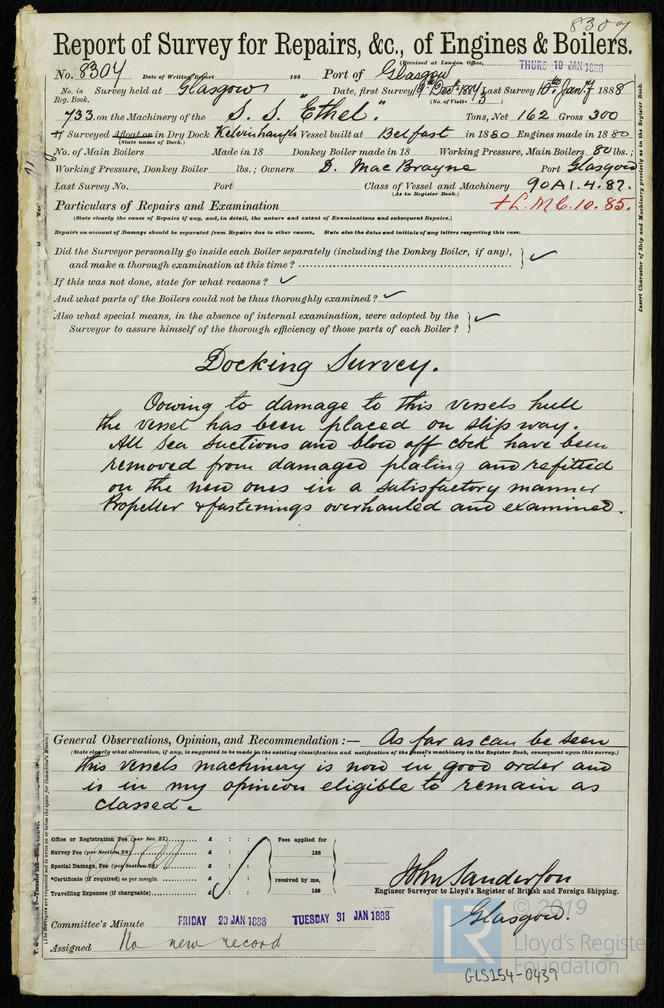 8307
Report of Survey for Repairs, &c., of Engines & Boilers.
(Received at London Office, THURS 19 JAN 1888
No. 8304 Date of Writing Report 188 Port of Glasgow
No. in Reg. Book. Survey held at Glasgow Date, first Survey 19th Decr 1887 Last Survey 10th Jany 1888
(No. of Visits 3)
733. on the Machinery of the S. S. "Ethel". Tons, Net 162 Gross 300
Surveyed Afloat or in Dry Dock Kelvinhaugh Vessel built at Belfast in 1880 Engines made in 1880
(State name of Dock.)
No. of Main Boilers Made in 18 Donkey Boiler made in 18 Working Pressure, Main Boilers 80 lbs.;
Working Pressure, Donkey Boiler lbs.; Owners D. MacBrayne Port Glasgow
Last Survey No. Port Class of Vessel and Machinery 90A1.4.87.
(As in Register Book.)
Particulars of Repairs and Examination +L.M.C.10.85.
(State clearly the cause of Repairs if any, and, in detail, the nature and extent of Examinations and subsequent Repairs.)
Repairs on account of Damage should be separated from Repairs due to other causes. State also the dates and initials of any letters respecting this case.
Did the Surveyor personally go inside each Boiler separately (including the Donkey Boiler, if any),
and make a thorough examination at this time?
If this was not done, state for what reasons?
And what parts of the Boilers could not be thus thoroughly examined?
Also what special means, in the absence of internal examination, were adopted by the
Surveyor to assure himself of the thorough efficiency of those parts of each Boiler?
Insert Character of Ship and Machinery precisely as in the Register Book.
Docking Survey.
Oowing to damage to this vessels hull
the vessel has been placed on slip way.
All sea suctions and blow off cock have been
removed from damaged plating and refitted
on the new ones in a satisfactory manner
Propeller & fastenings overhauled and examined.
General Observations, Opinion, and Recommendation :— As far as can be seen
(State clearly what alteration, if any, is suggested to be made in the existing classification and notification of the vessel's machinery in the Register Book, consequent upon this survey.)
this vessels machinery is now in good order and
is in my opinion eligible to remain as
classed.
Office or Registration Fee (per Sec. 27) £ : : Fees applied for
Survey Fee (per Section 28) £ : : 188
Special Damage, Fee (per Section 28) £ : :
*Certificate (if required) as per margin £ : : received by me,
Travelling Expenses (if chargeable) £ : : 188
John Sanderson
Engineer Surveyor to Lloyd's Register of British and Foreign Shipping.
Glasgow.
Committee's Minute FRIDAY 20 JAN 1888 TUESDAY 31 JAN 1888
Assigned No new record
LR
© 2019
Lloyd's Register
Foundation
GLS154-0439